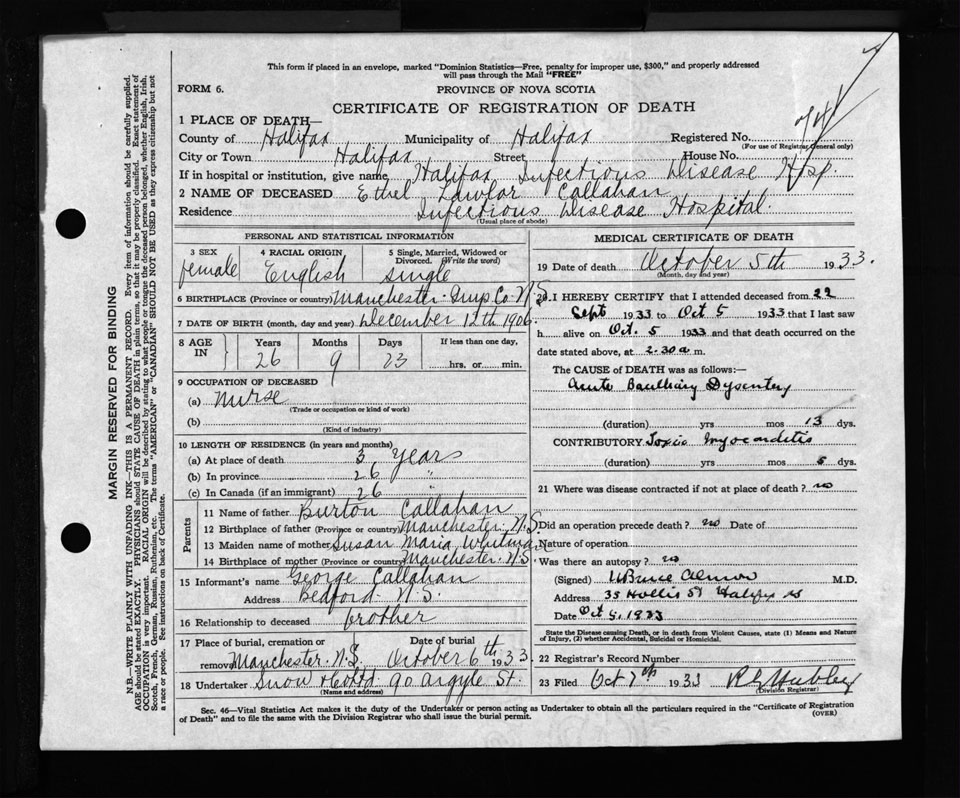 This form if placed in an envelope, marked "Dominion Statistics—Free, penalty for improper use, $300," and properly addressed
will pass through the Mail "FREE"
FORM 6.
PROVINCE OF NOVA SCOTIA
CERTIFICATE OF REGISTRATION OF DEATH
1 PLACE OF DEATH—
County of Halifax Municipality of Halifax Registered No.
(For use of Registrar General only)
City or Town Halifax Street House No.
If in hospital or institution, give name Halifax Infectious Disease Hosp.
2 NAME OF DECEASED Ethel Lawlor Callahan
Residence Infectious Disease Hospital.
(Usual place of abode)
PERSONAL AND STATISTICAL INFORMATION
3 SEX 4 RACIAL ORIGIN 5 Single, Married, Widowed or
Divorced. (Write the word)
female English single
6 BIRTHPLACE (Province or country) Manchester. Guys. Co. N.S.
7 DATE OF BIRTH (month, day and year) December 12th 1906.
8 AGE IN Years Months Days If less than one day,
26 9 23 hrs. or min.
9 OCCUPATION OF DECEASED
(a) Nurse
(Trade or occupation or kind of work)
(b)
(Kind of industry)
10 LENGTH OF RESIDENCE (in years and months)
(a) At place of death 3 years
(b) In province 26 "
(c) In Canada (if an immigrant) 26 "
Parents
11 Name of father Burton Callahan
12 Birthplace of father (Province or country) Manchester. N.S.
13 Maiden name of mother Susan Maria Whitman
14 Birthplace of mother (Province or country) Manchester. N.S.
15 Informant's name George Callahan
Address Bedford N.S.
16 Relationship to deceased brother
17 Place of burial, cremation or Date of burial
removal Manchester. N.S. October 6th 1933
18 Undertaker Snow & Co Ltd 90 Argyle St.
(Name and address)
MEDICAL CERTIFICATE OF DEATH
19 Date of death October 5th 1933.
(Month, day and year)
20. I HEREBY CERTIFY that I attended deceased from 22
Sept 1933 to Oct 5 1933 that I last saw
h alive on Oct. 5 1933 and that death occurred on the
date stated above, at 2.30 a m.
The CAUSE of DEATH was as follows:—
Acute Bacillary Dysentery
(duration) yrs mos 13 dys.
CONTRIBUTORY Toxic Myocarditis
(duration) yrs mos 5 dys.
21 Where was disease contracted if not at place of death? no
Did an operation precede death? no Date of
Nature of operation
Was there an autopsy? no
(Signed) Bruce Almon M.D.
Address 35 Hollis St Halifax NS
Date Oct 5. 1933
State the Disease causing Death, or in death from Violent Causes, state (1) Means and Nature
of Injury, (2) whether Accidental, Suicidal or Homicidal.
22 Registrar's Record Number
23 Filed Oct 7th 1933
(Division Registrar)
Sec. 46—Vital Statistics Act makes it the duty of the Undertaker or person acting as Undertaker to obtain all the particulars required in the "Certificate of Registration
of Death" and to file the same with the Division Registrar who shall issue the burial permit.
(OVER)
MARGIN RESERVED FOR BINDING
N.B.—WRITE PLAINLY WITH UNFADING INK—THIS IS A PERMANENT RECORD. Every item of information should be carefully supplied.
AGE should be stated EXACTLY. PHYSICIANS should STATE CAUSE OF DEATH in plain terms, so that it may be properly classified. Exact statement of
OCCUPATION is very important. RACIAL ORIGIN will be described by stating to what people or tongue the deceased person belonged, whether English, Irish,
Scotch, French, German, Russian, Ruthenian, etc. The terms "AMERICAN" or "CANADIAN" SHOULD NOT BE USED as they express citizenship but not
a race or people. See instructions on back of Certificate.